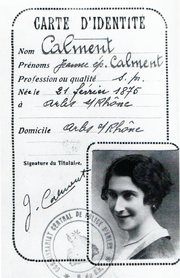 CARTE D'IDENTITÉ
Nom Calment
Prénoms Jeanne ép. Calment
Profession ou qualité s.p.
Né le 21 février 1875
à Arles s/Rhône
Domicile Arles s/Rhône
Signature du Titulaire,
J. Calment
CENTRAL DE POLICE